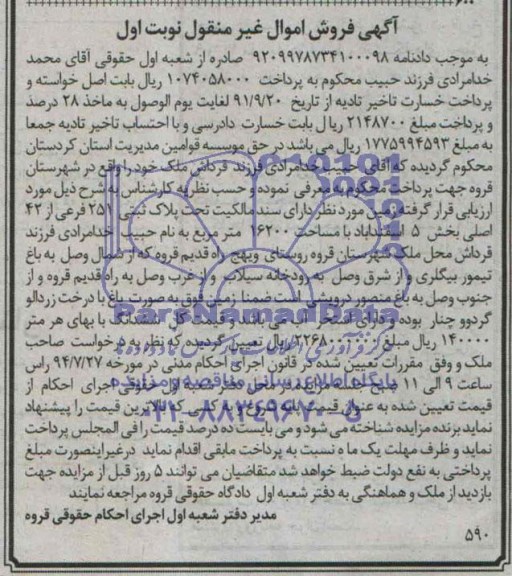 آگهی فروش اموال غیر منقول نوبت اول
به موجب دادنامه ۹۲۰۹۹۷۸۷۳۴۱۰۰۰۹۸ صادره از شعبه اول حقوقی آقای محمد
خدامرادی فرزند حبیب محکوم به پرداخت ۱۰۷۴۰۵۸۰۰۰ ریال بابت اصل خواسته و
پرداخت خسارت تاخیر تادیه از تاریخ ۹۱/۹/۲۰ لغایت یوم الوصول به ماخذ ۲۸ درصد
و پرداخت مبلغ ۲۱۴۸۷۰۰ ریال بابت خسارت دادرسی و با احتساب تاخیر تادیه جمعا
به مبلغ ۱۷۷۵۹۹۴۵۹۳ ریال می باشد در حق موسسه قوامین مدیریت استان کردستان
محکوم گردیده که آقای حبیب خدامرادی فرزند قرداش ملک خود را واقع در شهرستان
قروه جهت پرداخت محکوم به معرفی نموده و حسب نظریه کارشناس به شرح ذیل مورد
ارزیابی قرار گرفته زمین مورد نظر دارای سند مالکیت تحت پلاک ثبتی ۲۵۱ فرعی از ۴۲
اصلی بخش ۵ با مساحت ۱۶۲۰۰ متر مربع به نام حبیب خدامرادی فرزند
قرداش محل ملک شهرستان قروه روستای ویهج راه قدیم قروه که از شمال وصل به باغ
تیمور بیگلری و از شرق وصل به رودخانه سیلاب و از غرب وصل به راه قدیم قروه و از
جنوب وصل به باغ منصور درویشی است ضمنا زمین فوق به صورت باغ با درخت زردالو
گردوو چنار بوده و دارای استخر آب می باشد و قیمت کل ششدانگ با بهای هر متر
۱۴۰۰۰۰ ریال مبلغ ۲۲۶۸۰۰۰۰۰۰ ریال تعیین گردیده که نظر به درخواست صاحب
ملک و وفق مقررات تعیین شده در قانون اجرای احکام مدنی در مورخه ۹۴/۷/۲۷ راس
ساعت ۹ الی ۱۱ صبح جلسه مزایده در محل دفتر شعبه اول حقوقی اجرای احکام از
قیمت تعیین شده به عنوان قیمت پایه شروع و هر کسی که بالاترین قیمت را پیشنهاد
نماید برنده مزایده شناخته می شود و می بایست ده درصد قیمت را فی المجلس پرداخت
نماید و ظرف مهلت یک ماه نسبت به پرداخت مابقی اقدام نماید درغیر اینصورت مبلغ
پرداختی به نفع دولت ضبط خواهد شد متقاضیان می توانند ۵ روز قبل از مزایده جهت
بازدید از ملک و هماهنگی به دفتر شعبه اول دادگاه حقوقی قروه مراجعه نمایند
مدیر دفتر شعبه اول اجرای احکام حقوقی قروه
۵۹۰
ParsNamadData
پایگاه اطلاع رسانی مناقصه و مزایده
۰۲۱-۸۸۳۴۹۶۷۰-۵